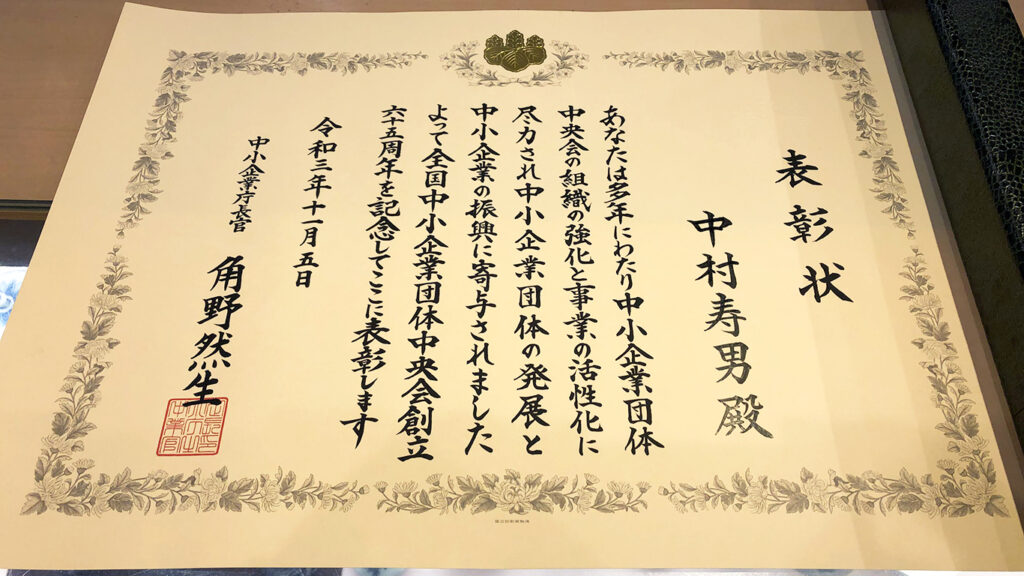 表彰状
中村寿男殿
あなたは多年にわたり中小企業団体
中央会の組織の強化と事業の活性化に
尽力され中小企業団体の発展と
中小企業の振興に寄与されました
よって全国中小企業団体中央会創立
六十五周年を記念してここに表彰します
令和三年十一月五日
中小企業庁長官
角野然生